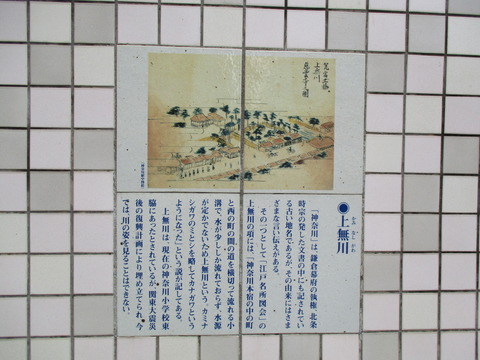 荒宿橋
上無川
慶雲寺之図
●上無川
かみ なし がわ
「神奈川」は、鎌倉幕府の執権、北条
時宗の発した文書の中にも記されてい
る古い地名であるが、その由来にはさま
ざまな言い伝えがある。
その一つとして「江戸名所図会」の
上無川の項には、「神奈川本宿の中の町
と西の町の間の道を横切って流れる小
溝で、水が少ししか流れておらず、水源
が定かでないため上無川という。カミナ
シガワのミとシを略してカナガワという
ようになった」という説が記してある。
上無川は、現在の神奈川小学校東
脇にあったとされているが、関東大震災
後の復興計画により埋め立てられ、今
では、川の姿を見ることはできない。